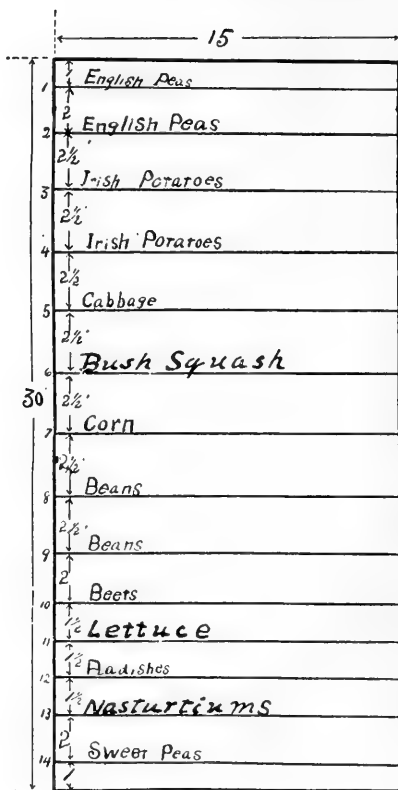 15
1
English Peas
1
2
English Peas
2
2½'
Irish Potatoes
3
2½'
Irish Potatoes
4
2½
Cabbage
5
2½'
Bush Squash
6
30
2½'
Corn
7
2½'
Beans
8
2½'
Beans
9
2
Beets
10
1½
Lettuce
11
1½
Radishes
12
1½
Nasturtiums
13
2
Sweet Peas
14
1